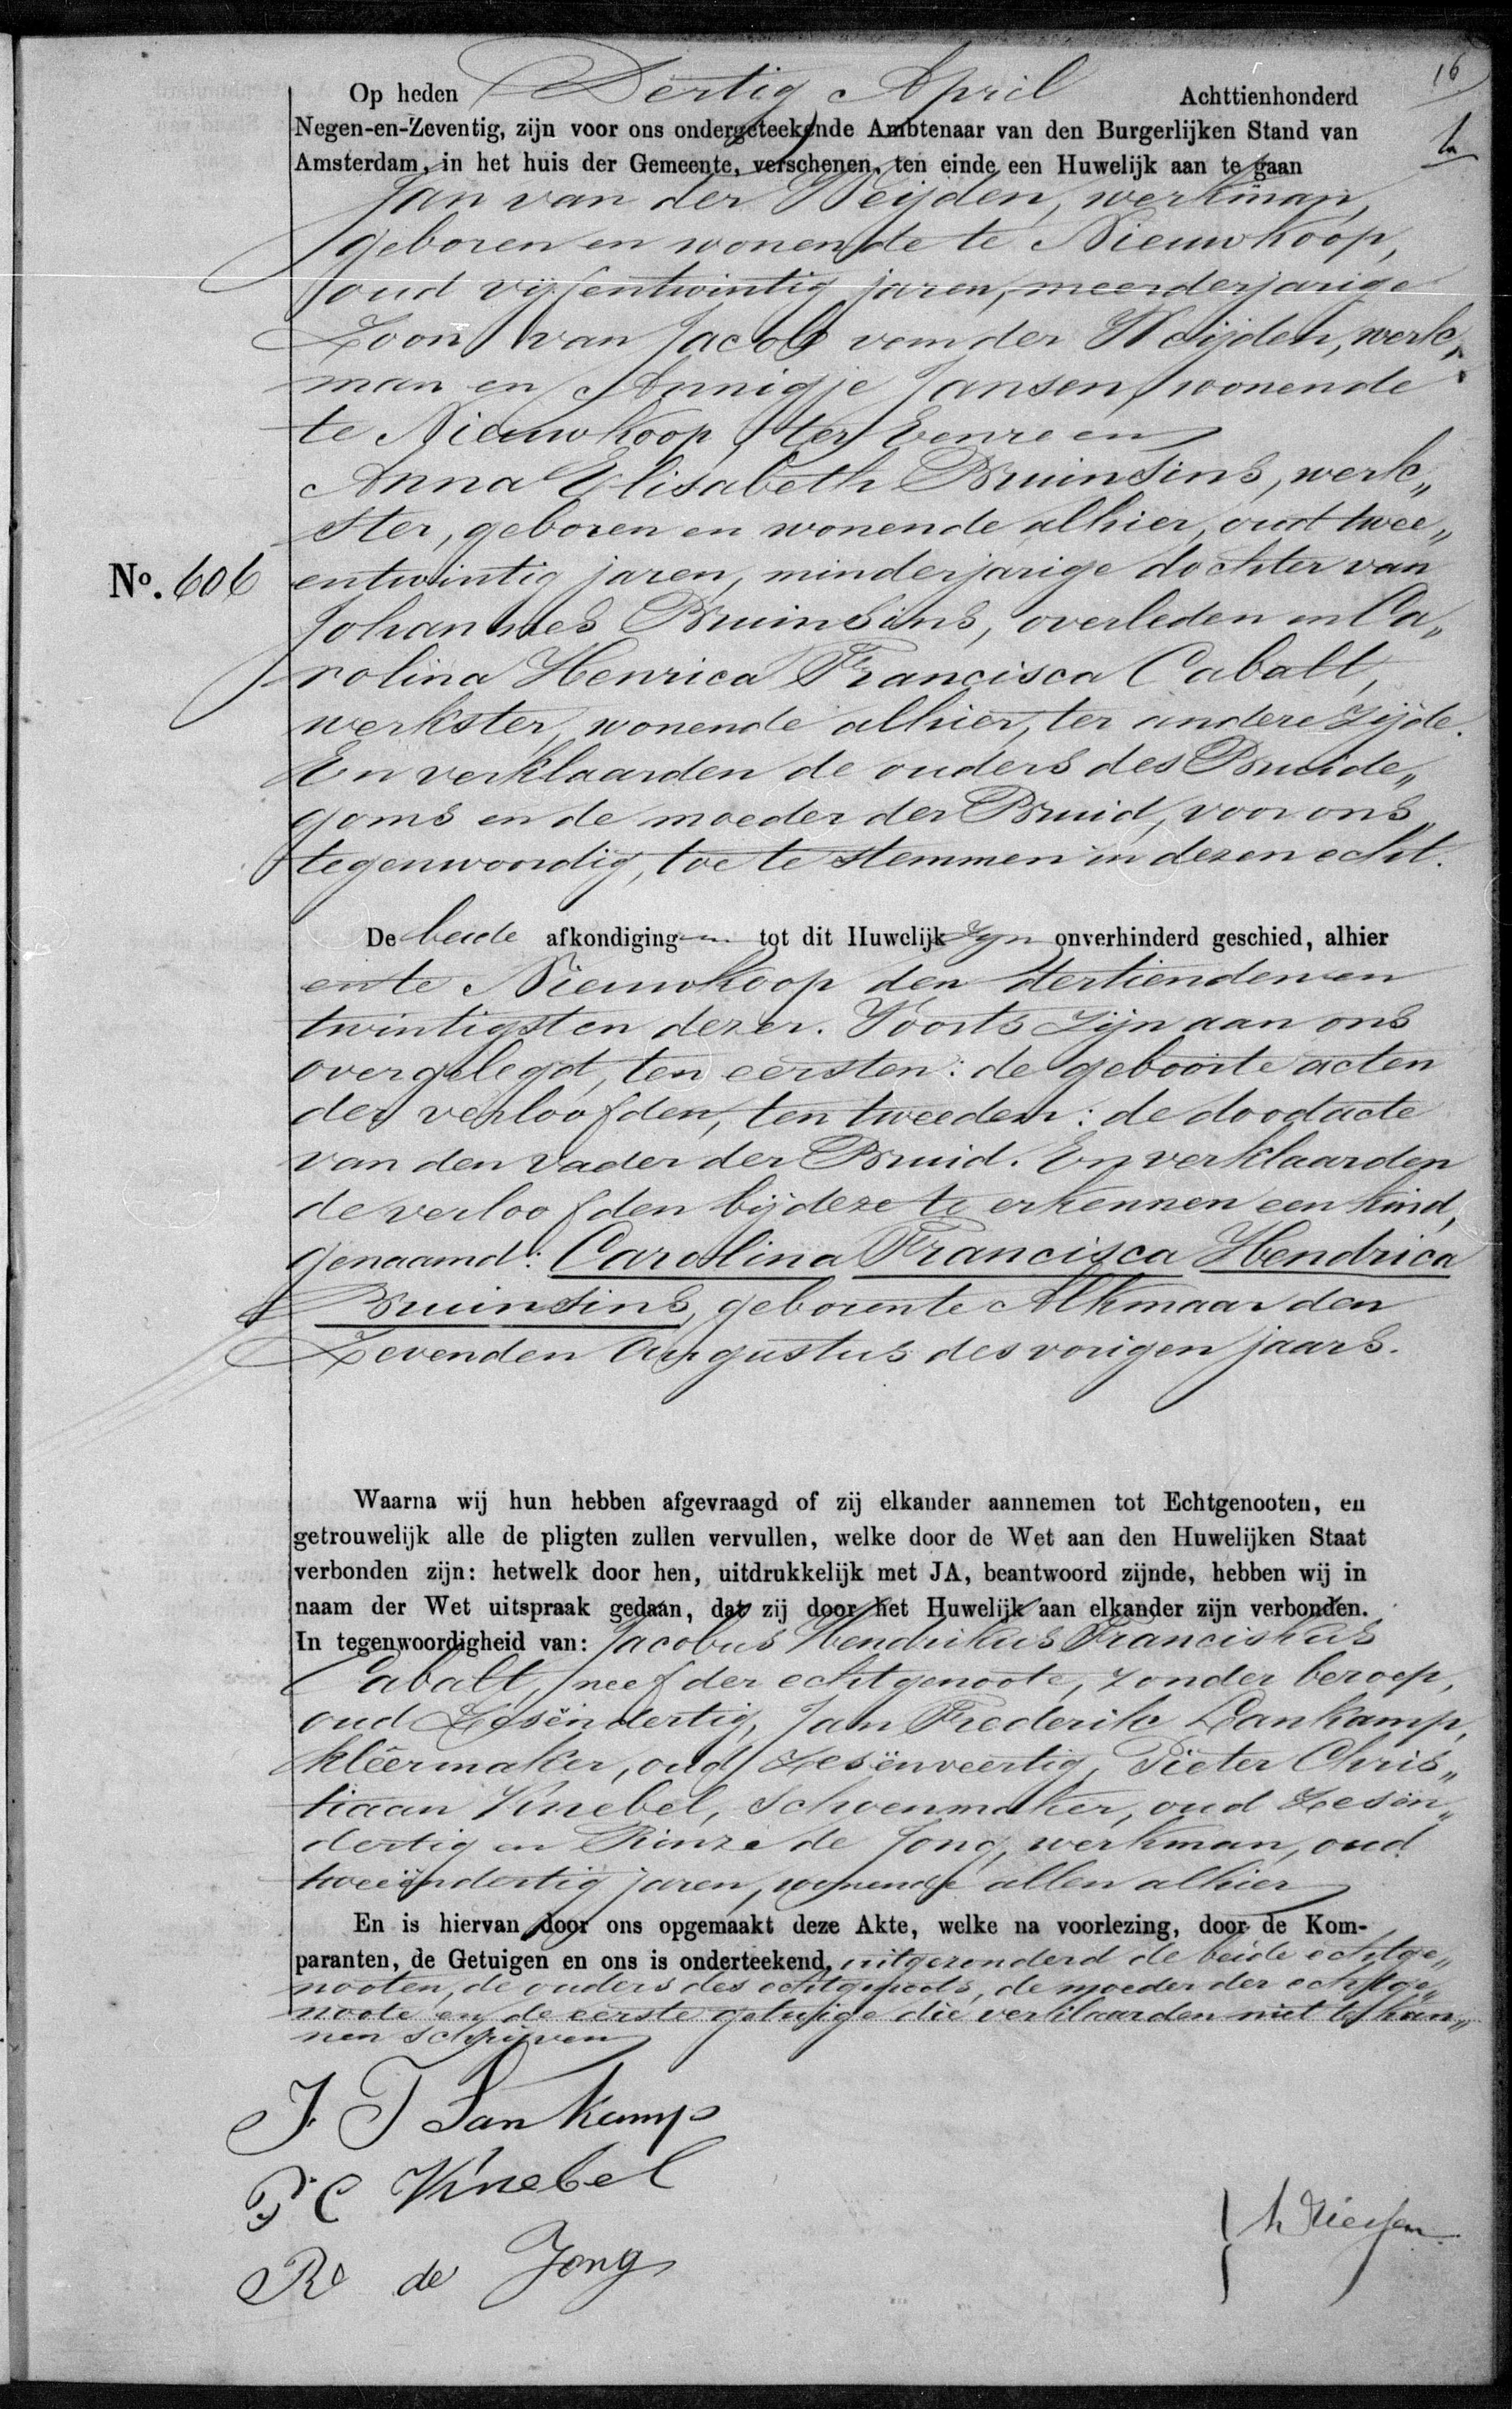 16
Op heden Dertig April Achttienhonderd
Negen-en-Zeventig, zijn voor ons ondergeteekende Ambtenaar van den Burgerlijken Stand van
Amsterdam, in het huis der Gemeente, verschenen, ten einde een Huwelijk aan te gaan
Jan van der Weijden, werkman,
geboren en wonende te Nieuwkoop,
oud vijfentwintig jaren, meerderjarige
Zoon van Jacob van der Weijden, werk„
man en Annigje Jansen, wonende
te Nieuwkoop, ter Eenre en
Anna Elisabeth Bruinsins, werk„
ster, geboren en wonende alhier, oud twee„
No. 606 entwintig jaren, minderjarige dochter van
Johannes Bruinsins, overleden en Ca„
rolina Henrica Francisca Cabalt,
werkster, wonende alhier, ter andere zijde.
En verklaarden de ouders des Bruide„
goms en de moeder der Bruid, voor ons
tegenwoordig, toe te stemmen in dezen echt.
De beide afkondigingen tot dit Huwelijk zijn onverhinderd geschied, alhier
en te Nieuwkoop den dertienden en
twintigsten dezer. Voorts zijn aan ons
overgelegd, ten eersten: de geboorte acten
der verloofden, ten tweeden: de doodacte
van den vader der Bruid. En verklaarden
de verloofden bij deze te erkennen een kind,
genaamd: Carolina Francisca Hendrica
Bruinsins, geboren te Alkmaar den
Zevenden Augustus des vorigen jaars.
Waarna wij hun hebben afgevraagd of zij elkander aannemen tot Echtgenooten, en
getrouwelijk alle de pligten zullen vervullen, welke door de Wet aan den Huwelijken Staat
verbonden zijn: hetwelk door hen, uitdrukkelijk met JA, beantwoord zijnde, hebben wij in
naam der Wet uitspraak gedaan, dat zij door het Huwelijk aan elkander zijn verbonden.
In tegenwoordigheid van: Jacobus Hendrikus Franciskus
Cabalt, neef der echtgenoote, zonder beroep,
oud Zesëndertig, Jan Frederik Lankamp,
kléermaker, oud Zesënveertig, Pieter Chris„
tiaan Knebel, Schoenmaker, oud Zesën„
dertig en Rinze de Jong, werkman, oud
tweeëndertig jaren, wonende allen alhier
En is hiervan door ons opgemaakt deze Akte, welke na voorlezing, door de Kom-
paranten, de Getuigen en ons is onderteekend, uitgezonderd de beide echtge„
nooten, de ouders des echtgenoots, de moeder der echtge„
noote en de eerste getuige die verklaarden niet te kun„
nen schrijven
J. F Lankamp
P. C Knebel
R de Jong